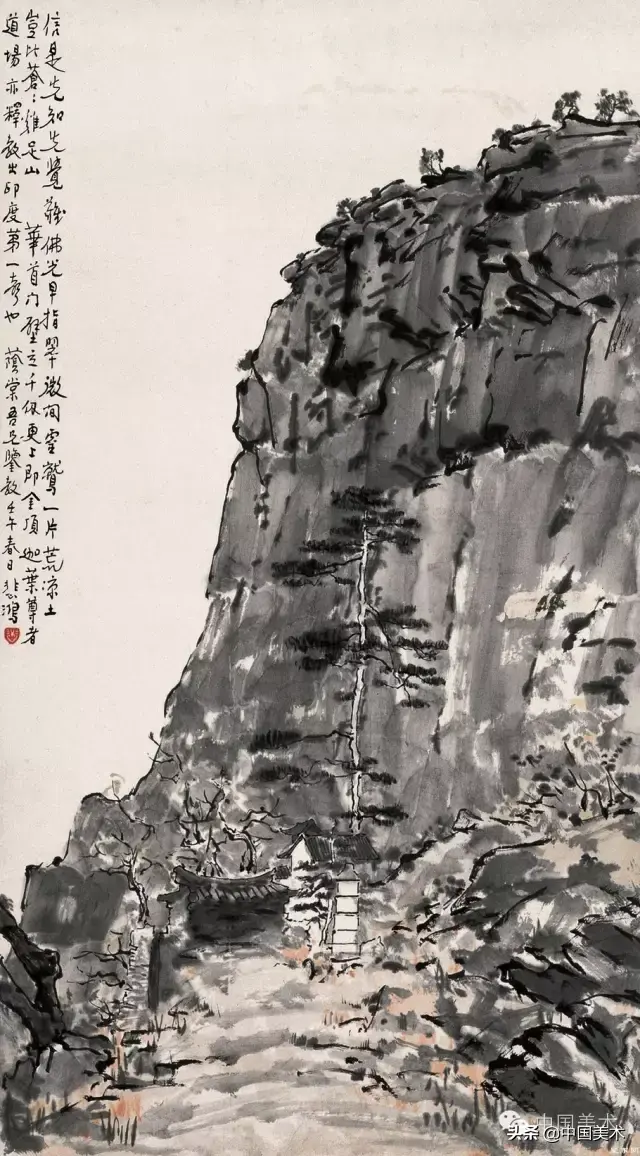 信是先知先覺難佛光早指翠微間靈鷲一片荒涼土
豈比蒼〻雞足山 華首門壁立千仞更上即金頂迦葉尊者
道場亦釋教出印度第一聲也 蔭棠吾兄鑒教壬午春日悲鴻
中国美术
头条 @中国美术